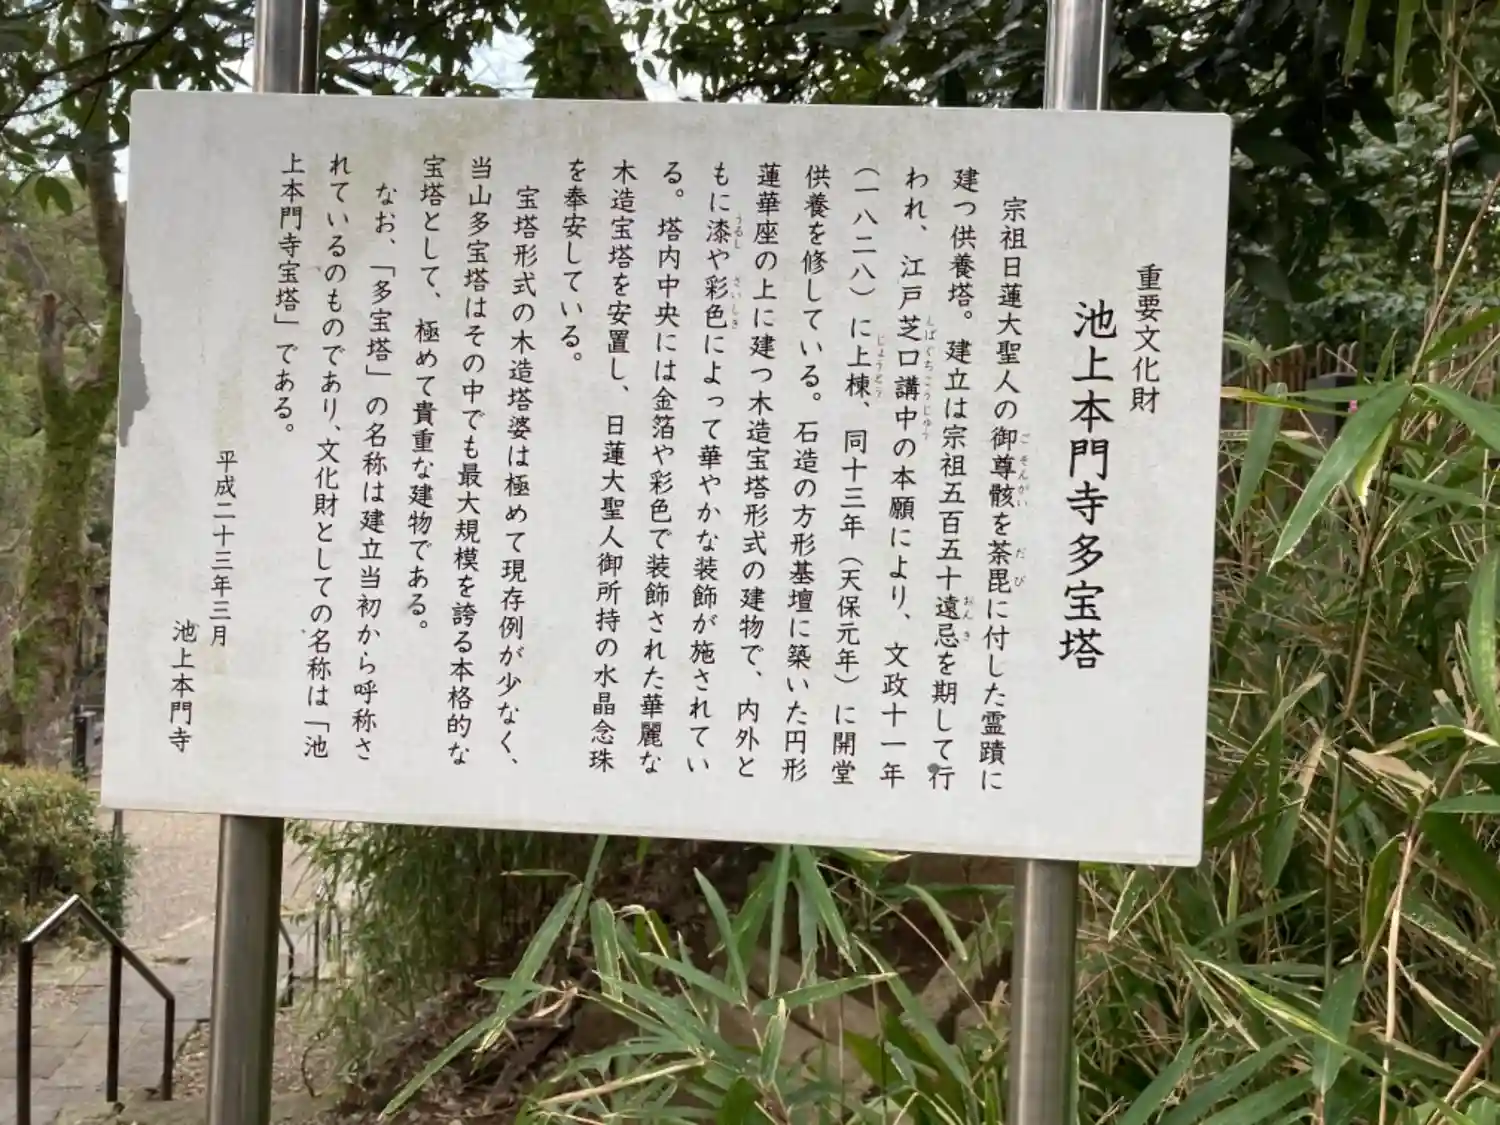 重要文化財
池上本門寺多宝塔
宗祖日蓮大聖人の御尊骸を荼毘に付した霊蹟に
建つ供養塔。建立は宗祖五百五十遠忌を期して行
われ、江戸芝口講中の本願により、文政十一年
（一八二八）に上棟、同十三年（天保元年）に開堂
供養を修している。石造の方形基壇に築いた円形
蓮華座の上に建つ木造宝塔形式の建物で、内外と
もに漆や彩色によって華やかな装飾が施されてい
る。塔内中央には金箔や彩色で装飾された華麗な
木造宝塔を安置し、日蓮大聖人御所持の水晶念珠
を奉安している。
宝塔形式の木造塔婆は極めて現存例が少なく、
当山多宝塔はその中でも最大規模を誇る本格的な
宝塔として、極めて貴重な建物である。
なお、「多宝塔」の名称は建立当初から呼称さ
れているのものであり、文化財としての名称は「池
上本門寺宝塔」である。
平成二十三年三月
池上本門寺